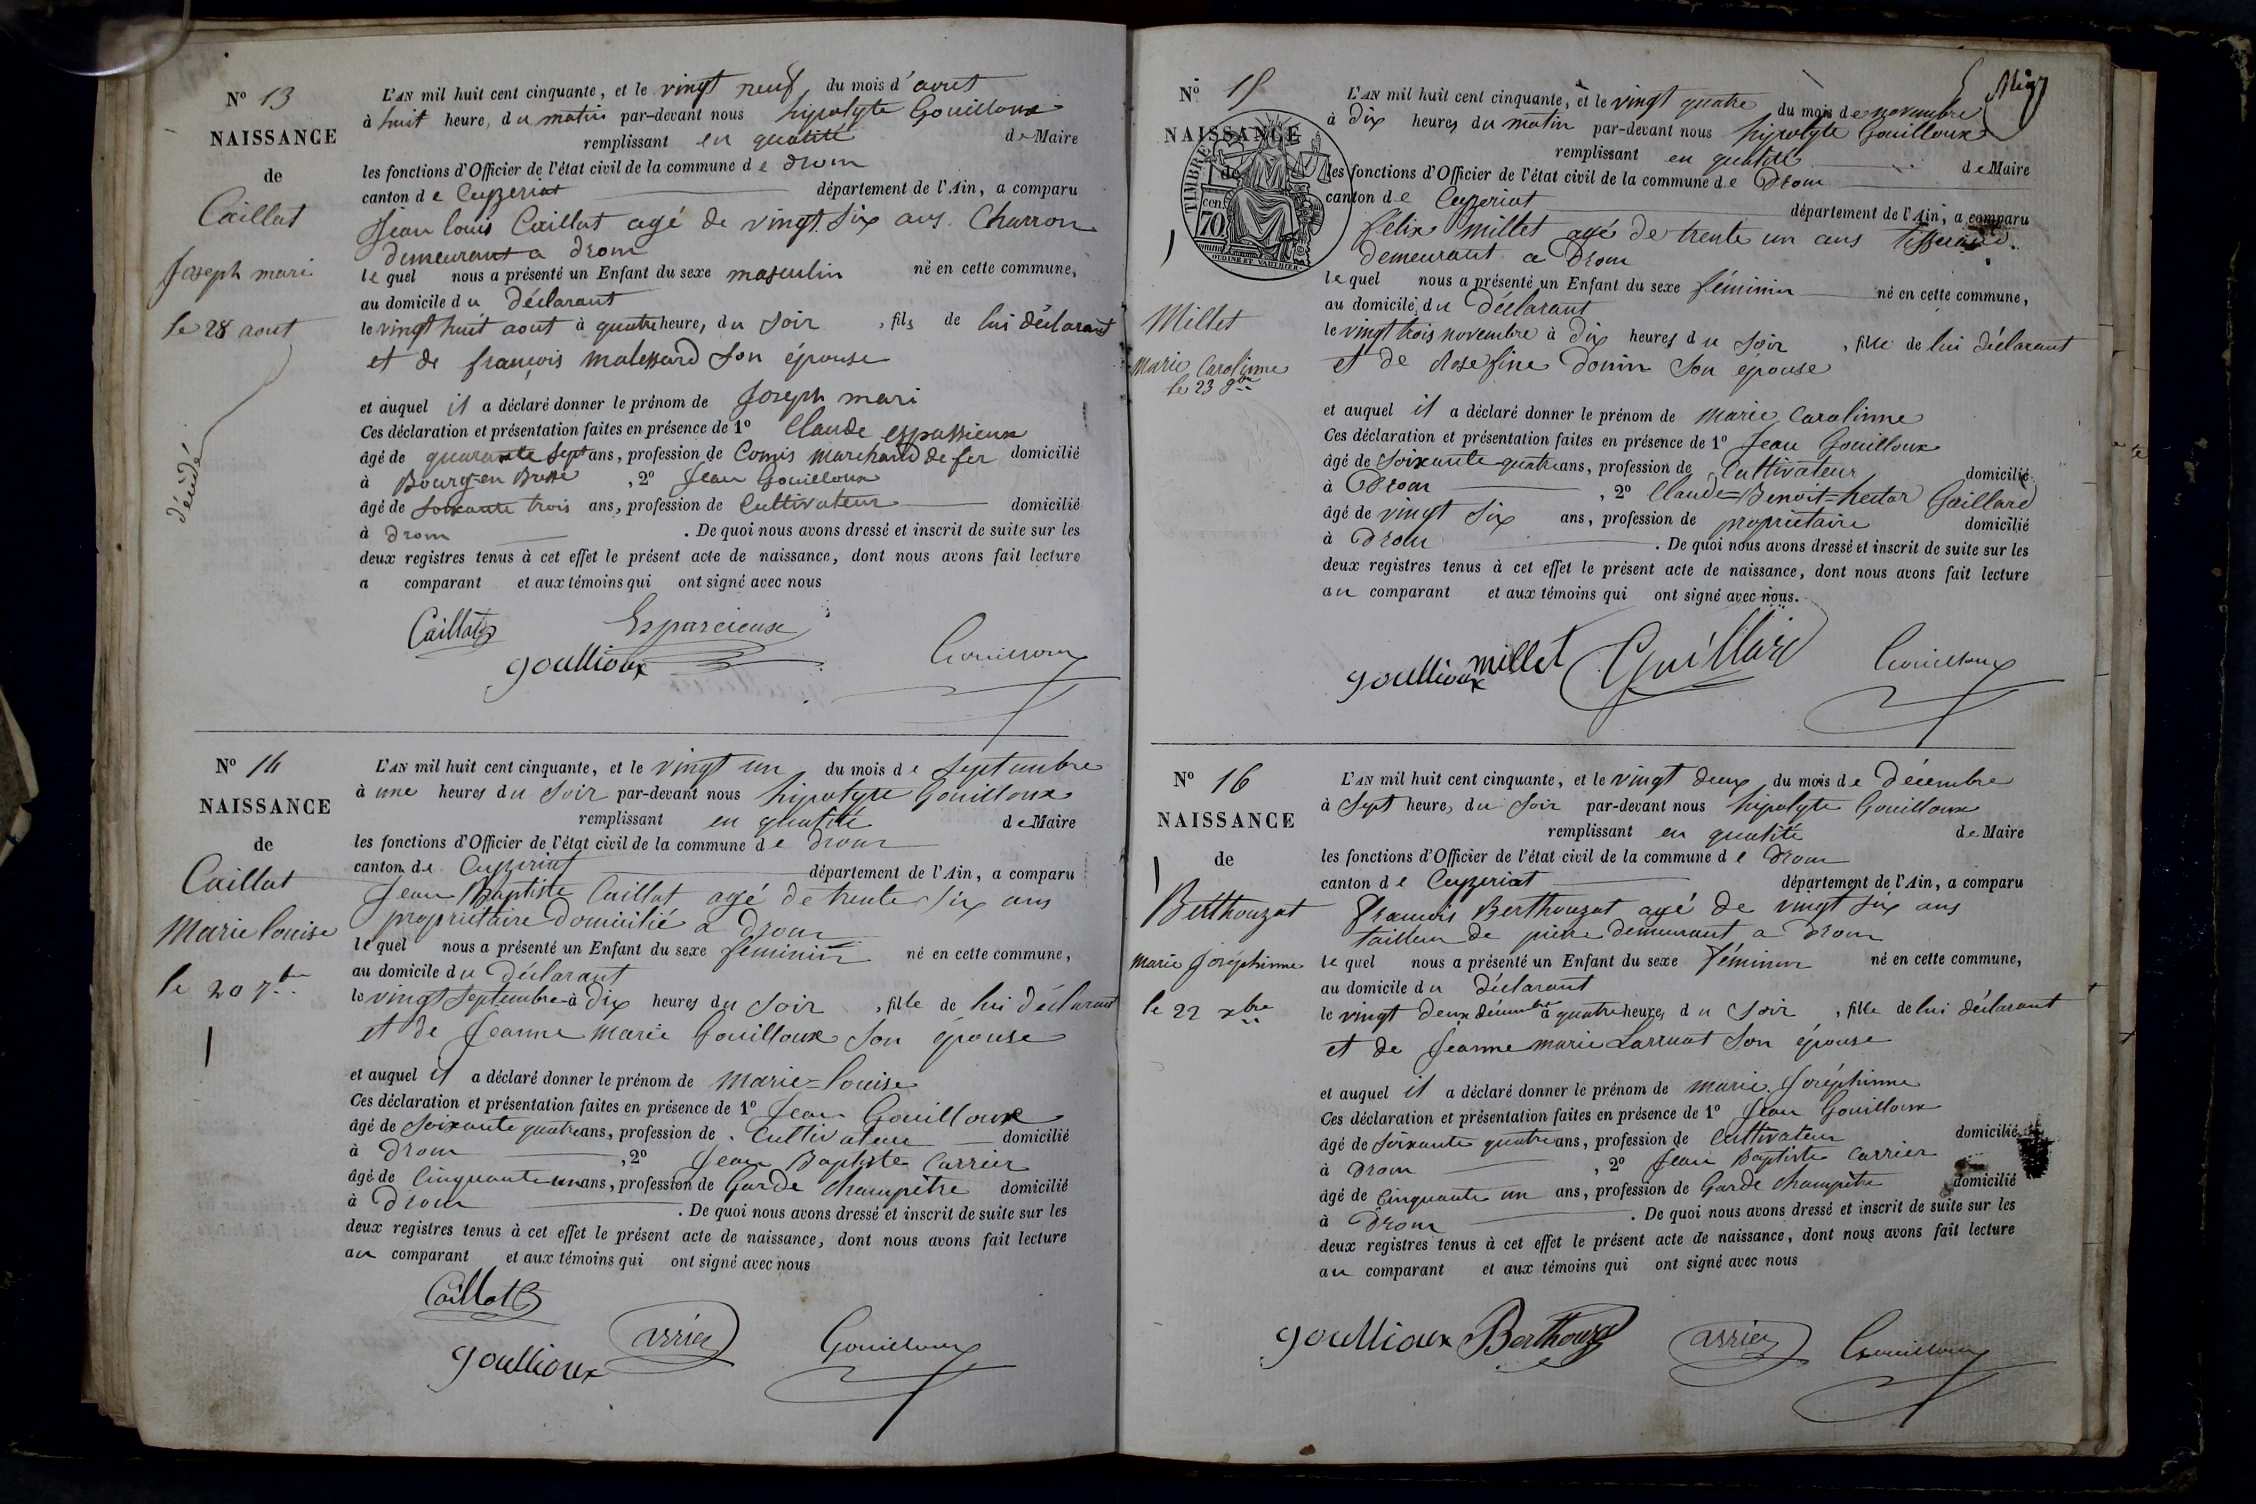 N° 13
NAISSANCE
de
Caillat
Joseph mari
le 28 aout
décédé
L'AN mil huit cent cinquante, et le vingt neuf du mois d'aout
à huit heure, du matin par-devant nous hipolyte Gouilloux
remplissant en qualité de Maire
les fonctions d'Officier de l'état civil de la commune de drom
canton de Ceyzeriat département de l'Ain, a comparu
Jean louis Caillat agé de vingt six ans Charron
demeurant a drom
lequel nous a présenté un Enfant du sexe masculin né en cette commune,
au domicile du Déclarant
le vingt huit aout à quatre heure, du soir, fils de lui déclarant
et de françois son épouse
et auquel il a déclaré donner le prénom de Joseph mari
Ces déclaration et présentation faites en présence de 1° Claude espassieux
âgé de quarante sept ans, profession de Comis marchand de fer domicilié
à Bourg en Bresse, 2° Jean Gouilloux
âgé de soixante trois ans, profession de Cultivateur domicilié
à drom. De quoi nous avons dressé et inscrit de suite sur les
deux registres tenus à cet effet le présent acte de naissance, dont nous avons fait lecture
a comparant et aux témoins qui ont signé avec nous
Caillat Esparcieux
goullioux Gouilloux
N° 14
NAISSANCE
de
Caillat
Marie louise
le 20 7bre
L'AN mil huit cent cinquante, et le vingt un du mois de Septembre
à une heures du soir par-devant nous hipolyte Gouilloux
remplissant en qualité de Maire
les fonctions d'Officier de l'état civil de la commune de drom
canton de Ceyzeriat département de l'Ain, a comparu
Jean Baptiste Caillat agé de trente six ans
propriétaire domicilié a drom
lequel nous a présenté un Enfant du sexe féminin né en cette commune,
au domicile du Déclarant
le vingt septembre à dix heures du soir, fille de lui déclarant
et de Jeanne marie Gouilloux son épouse
et auquel il a déclaré donner le prénom de marie=louise
Ces déclaration et présentation faites en présence de 1° Jean Gouilloux
âgé de soixante quatre ans, profession de Cultivateur domicilié
à drom, 2° Jean Baptiste Carrier
âgé de Cinquante un ans, profession de Garde champêtre domicilié
à drom. De quoi nous avons dressé et inscrit de suite sur les
deux registres tenus à cet effet le présent acte de naissance, dont nous avons fait lecture
au comparant et aux témoins qui ont signé avec nous
Caillat
goullioux Carrier Gouilloux
N° 15
NAISSANCE
de
TIMBRE
70 cen
OUDINÉ ET VAUTHIER
Millet
Marie Carolinne
le 23 9bre
L'AN mil huit cent cinquante, et le vingt quatre du mois de novembre
à dix heures du matin par-devant nous hipolyte Gouilloux
remplissant en qualité de Maire
les fonctions d'Officier de l'état civil de la commune de Drom
canton de Ceyzeriat département de l'Ain, a comparu
félix millet agé de trente un ans tisserand
demeurant a Drom
lequel nous a présenté un Enfant du sexe féminin né en cette commune,
au domicile du Déclarant
le vingt trois novembre à dix heures du soir, fille de lui déclarant
et de Josefine Donin son épouse
et auquel il a déclaré donner le prénom de marie Carolinne
Ces déclaration et présentation faites en présence de 1° Jean Gouilloux
âgé de soixante quatre ans, profession de Cultivateur domicilié
à Drom, 2° Claude=Benoit=hector Gaillard
âgé de vingt six ans, profession de propriétaire domicilié
à Drom. De quoi nous avons dressé et inscrit de suite sur les
deux registres tenus à cet effet le présent acte de naissance, dont nous avons fait lecture
au comparant et aux témoins qui ont signé avec nous.
goullioux millet Gaillard Gouilloux
N° 16
NAISSANCE
de
Berthouzat
marie Joséphinne
le 22 xbre
L'AN mil huit cent cinquante, et le vingt deux du mois de décembre
à sept heure, du soir par-devant nous hipolyte Gouilloux
remplissant en qualité de Maire
les fonctions d'Officier de l'état civil de la commune de Drom
canton de Ceyzeriat département de l'Ain, a comparu
francois Berthouzat agé de vingt six ans
tailleur de pierre demeurant a Drom
lequel nous a présenté un Enfant du sexe féminin né en cette commune,
au domicile du déclarant
le vingt deux décembre à quatre heures du soir, fille de lui déclarant
et de Jeanne marie Larruat son épouse
et auquel il a déclaré donner le prénom de marie Joséphinne
Ces déclaration et présentation faites en présence de 1° Jean Gouilloux
âgé de soixante quatre ans, profession de Cultivateur domicilié
à Drom, 2° Jean Baptiste Carrier
âgé de Cinquante un ans, profession de Garde champêtre domicilié
à Drom. De quoi nous avons dressé et inscrit de suite sur les
deux registres tenus à cet effet le présent acte de naissance, dont nous avons fait lecture
au comparant et aux témoins qui ont signé avec nous
goullioux Berthouzat Carrier Gouilloux